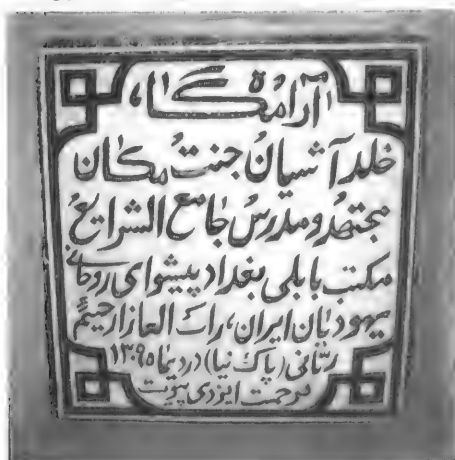 آرامگاه
خلد آشیان جنت مکان
مجتهد و مدرس جامع الشرایع
مکتب بابلی بغداد پیشوای روحانی
یهودیان ایران، راب العازار حییم
ربانی (پاک نیا) در دیماه ۱۳۹۵
برحمت ایزدی پیوست